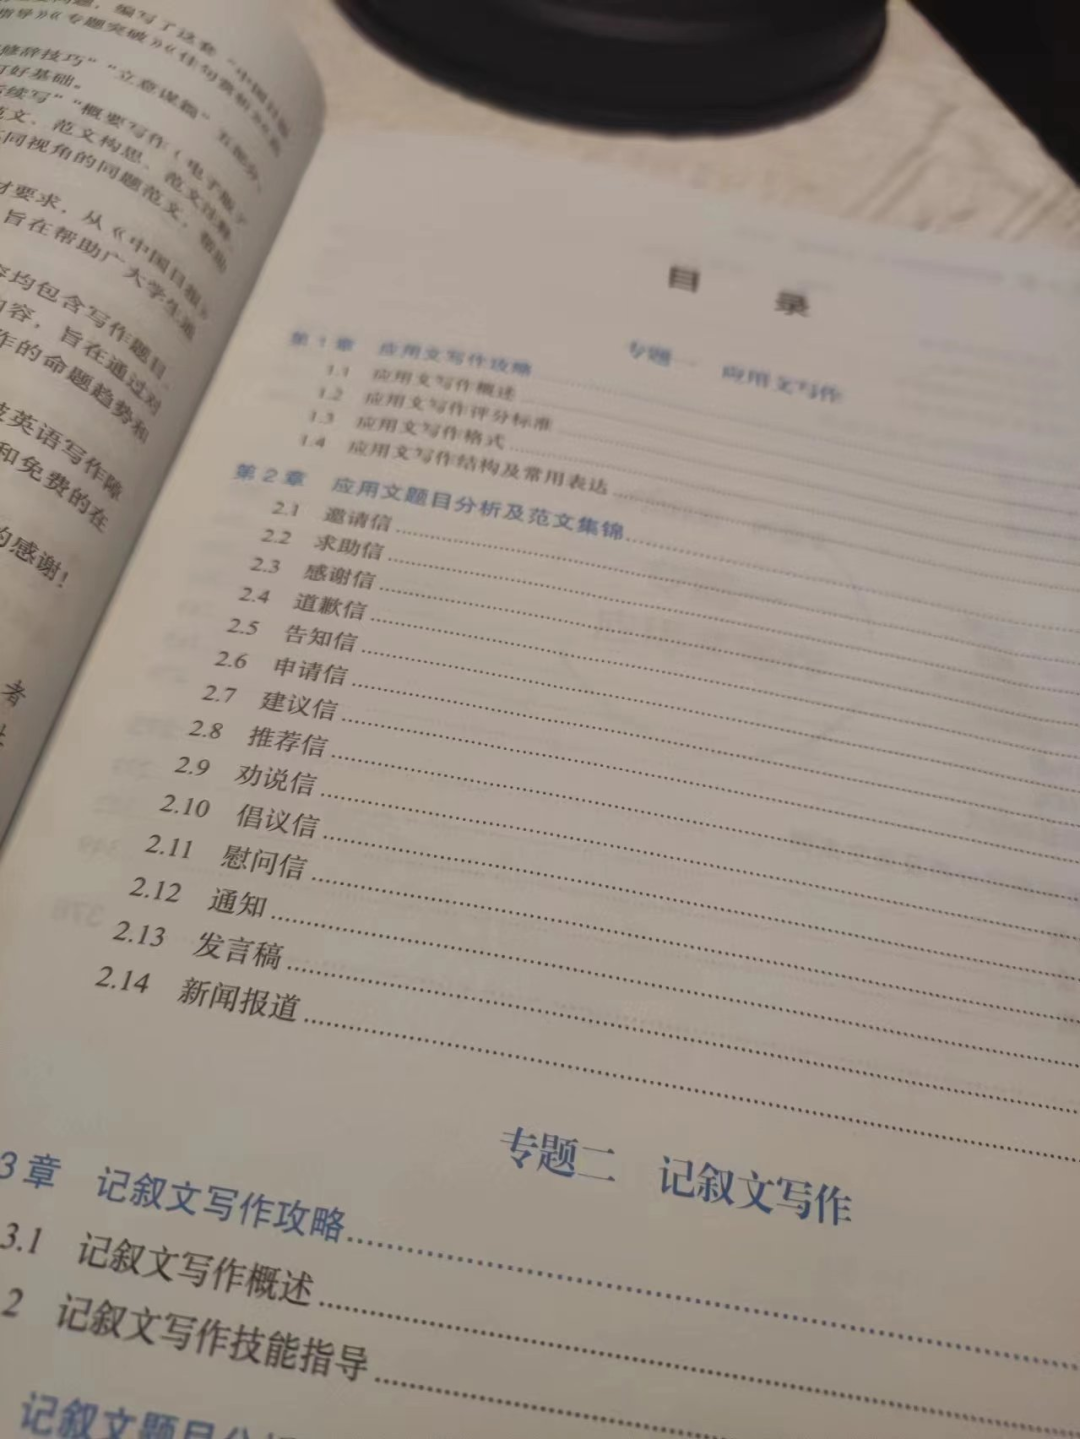 编写了这套“中国日报
指导》《专题突破》《佳句赏析》
修辞技巧”“立意谋篇”五部分，
打好基础。
续写”“概要写作（电子版）
范文、范文构思、范文注释、
不同视角的同题范文，帮助
材要求，从《中国日报》
旨在帮助广大学生通
均包含写作题目、
内容，旨在通过对
作的命题趋势和
英语写作障
和免费的在
的感谢！
者
目 录
专题一 应用文写作
第1章 应用文写作攻略
1.1 应用文写作概述
1.2 应用文写作评分标准
1.3 应用文写作格式
1.4 应用文写作结构及常用表达
第2章 应用文题目分析及范文集锦
2.1 邀请信
2.2 求助信
2.3 感谢信
2.4 道歉信
2.5 告知信
2.6 申请信
2.7 建议信
2.8 推荐信
2.9 劝说信
2.10 倡议信
2.11 慰问信
2.12 通知
2.13 发言稿
2.14 新闻报道
专题二 记叙文写作
3章 记叙文写作攻略
3.1 记叙文写作概述
2 记叙文写作技能指导
记叙文题目分析